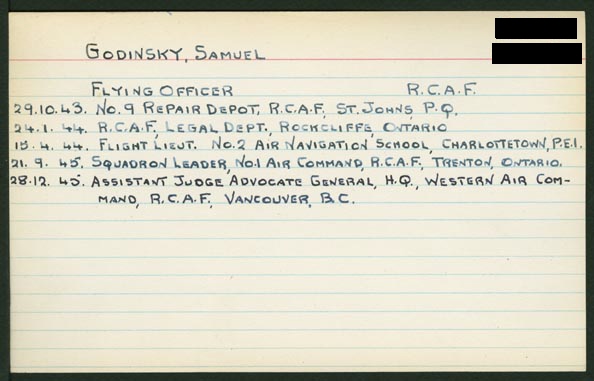 GODINSKY, SAMUEL
FLYING OFFICER R.C.A.F.
29.10.43. NO.9 REPAIR DEPOT, R.C.A.F., ST. JOHNS, P.Q.
24.1.44. R.C.A.F., LEGAL DEPT., ROCKCLIFFE, ONTARIO
15.4.44. FLIGHT LIEUT. NO.2 AIR NAVIGATION SCHOOL, CHARLOTTETOWN, P.E.I.
21.9.45. SQUADRON LEADER, NO.1 AIR COMMAND, R.C.A.F., TRENTON, ONTARIO.
28.12.45. ASSISTANT JUDGE ADVOCATE GENERAL, H.Q., WESTERN AIR COM-
MAND, R.C.A.F., VANCOUVER, B.C.